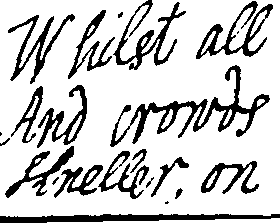 Whilst all
And crowds
Kneller, on